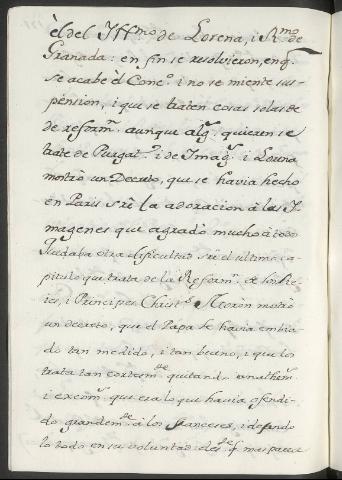 èl del Yll.mo de Lorena, i R.mo de
Granada: en fin se resolvieron, en q.
se acabe èl Conc.o i no se miente sus-
pension, i que se traten cosas solas de
de reform.n aunque alg.s quieren se
trate de Purgat.o i de Imag.s i Lorena
mostrò un Decreto, que se havia hecho
en Paris srè la adoracion à las Y-
magenes que agradò mucho à todo
Quedaba otra dificultad srè el ultimo ca-
pitulo que trata de la Reform.n de los Re-
ies, i Principes Christ.s Moron mostrò
un decreto, que el Papa le havia embia-
do tan medido, i tan bueno, i que los
trata tan cortesm.te quitando anathem.
i excom.n que era lo que havia ofendi-
do grandem.te à los Franceses, i dejando
lo todo en su voluntad mas parece